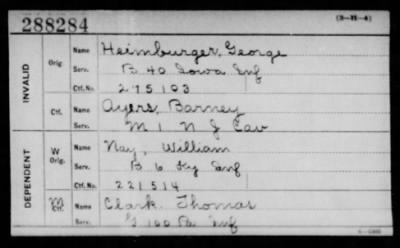 288284 (3-31-4)
INVALID
Orig.
Name Heimburger, George
Serv. B 40 Iowa Inf
Ctf. No. 275103
Ctf.
Name Ayers, Barney
Serv. M 1 N J Cav
DEPENDENT
W Orig.
Name Nay, William
Serv. B 6 Ky Inf
Ctf. No. 221514
M Ctf.
Name Clark Thomas
160 Pa Inf